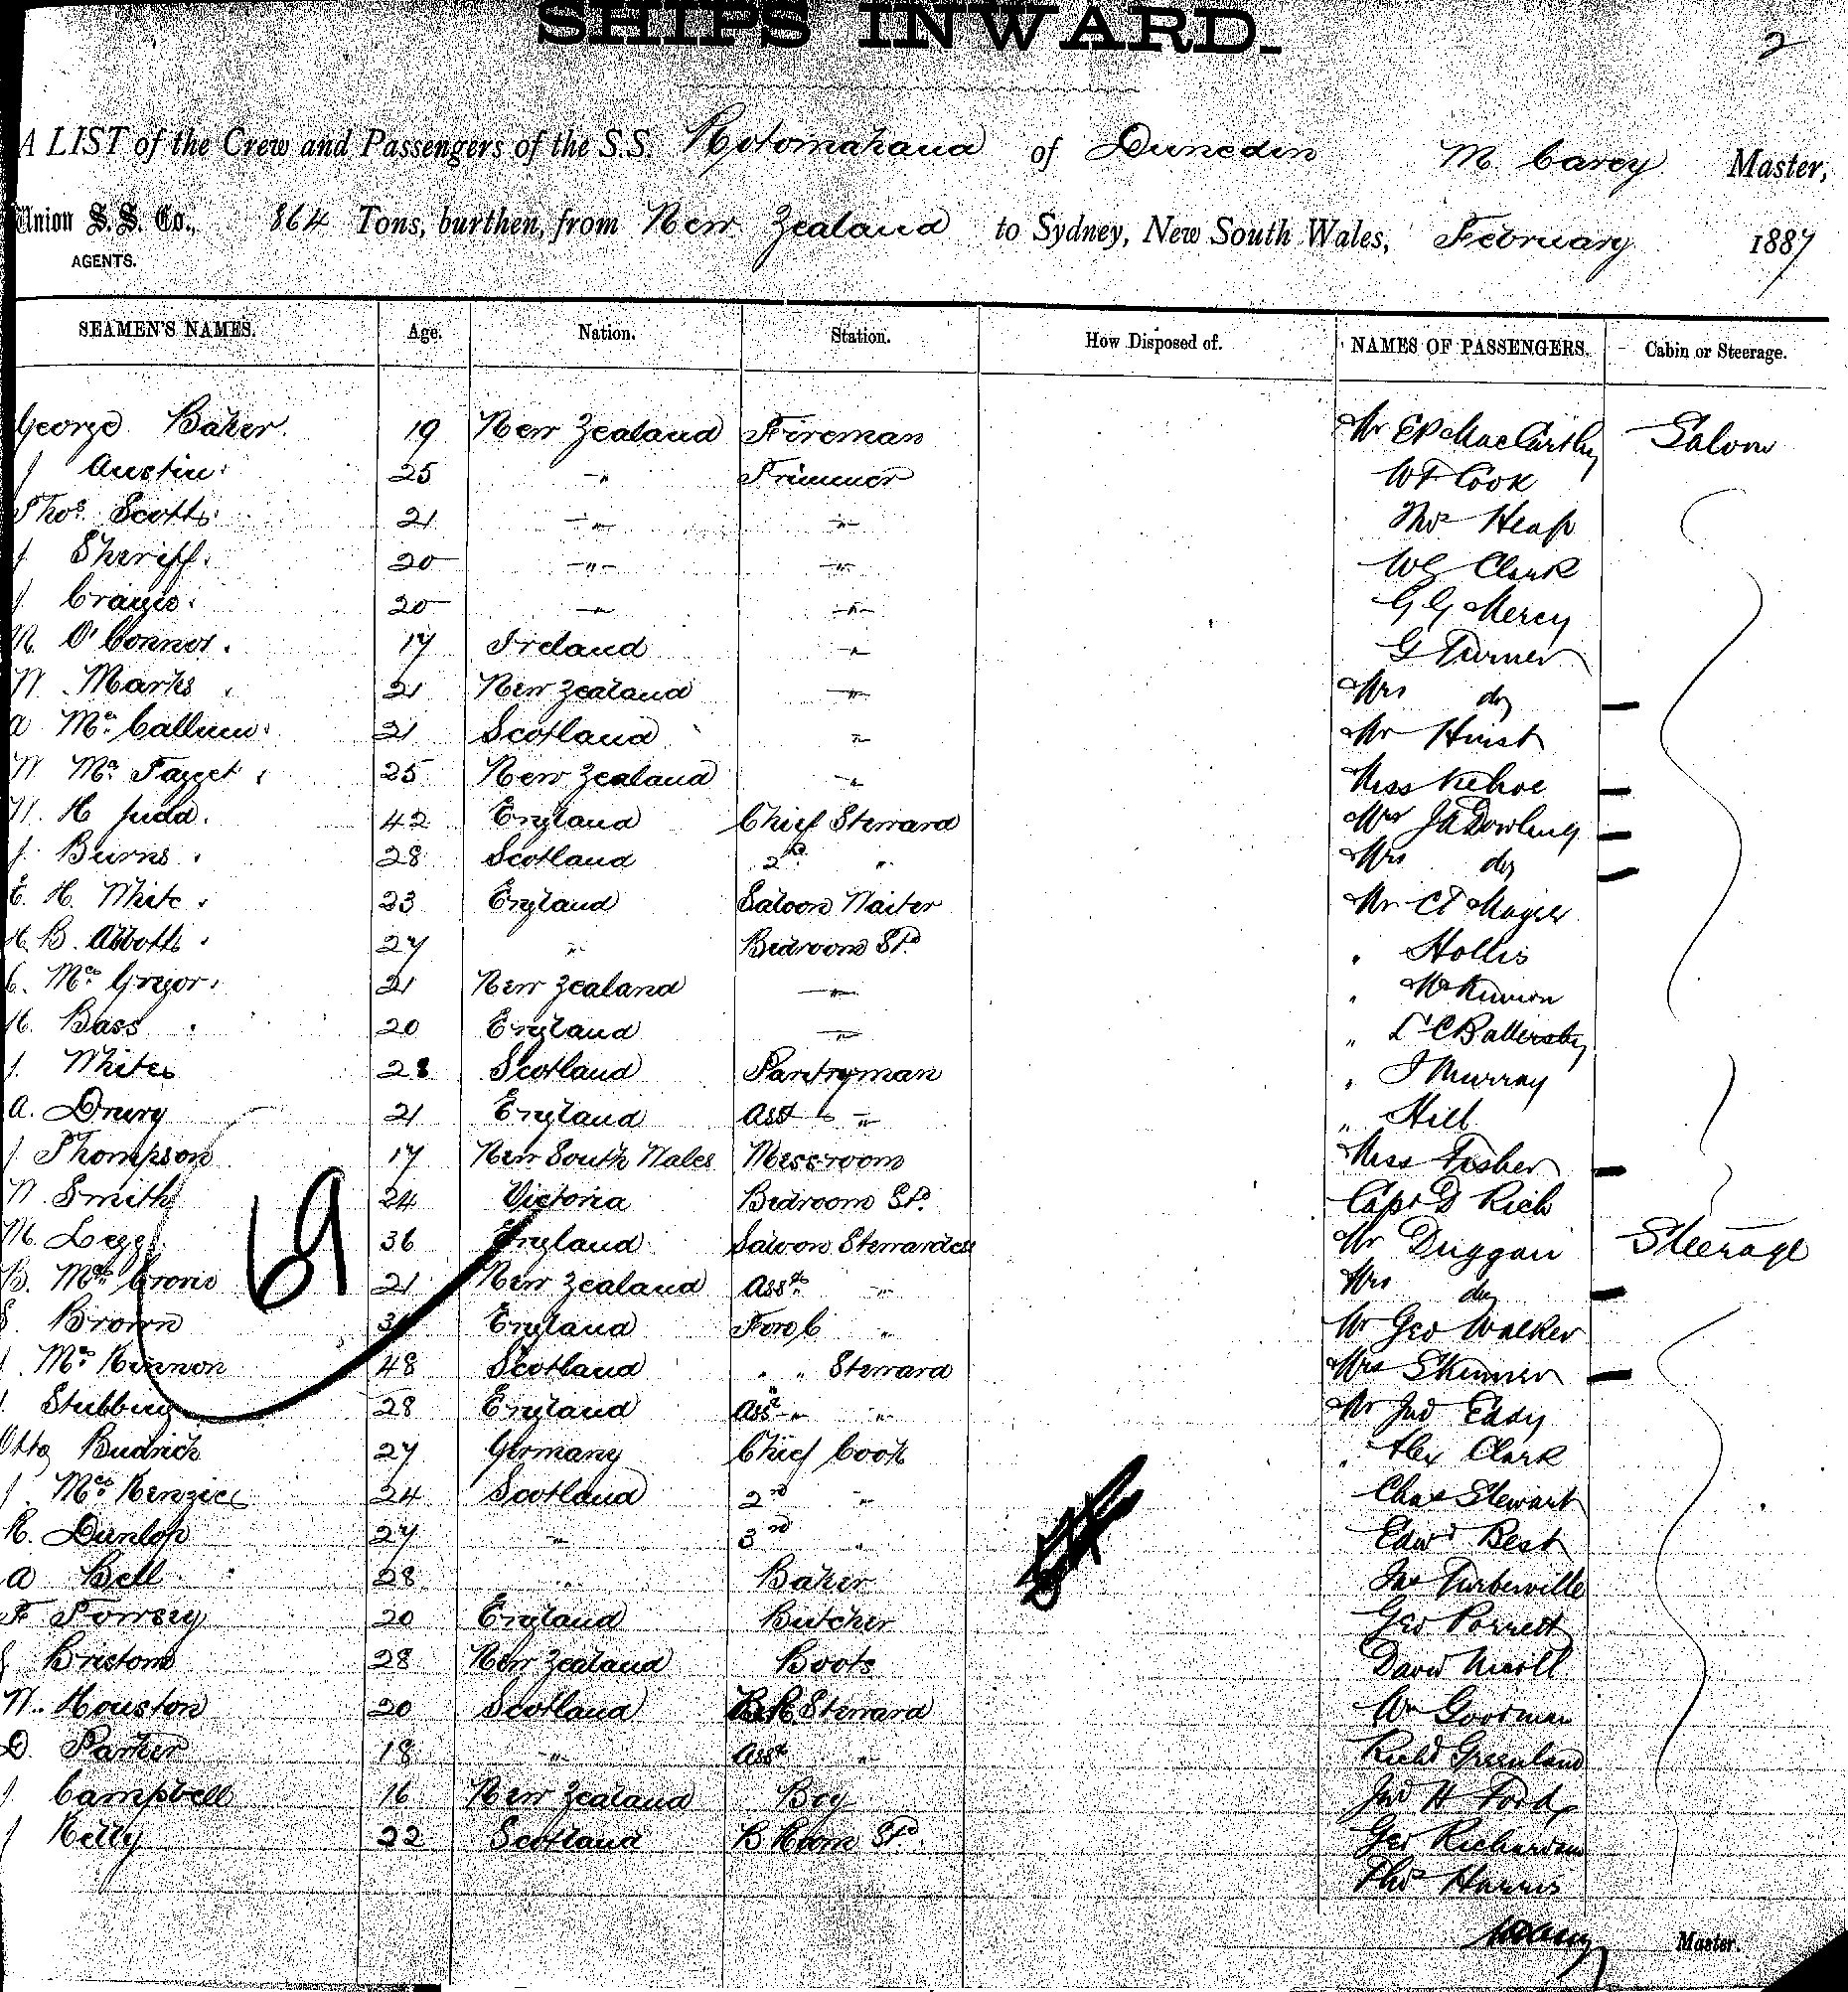 SHIPS INWARD.
2
A LIST of the Crew and Passengers of the S.S. Rotomahana of Dunedin M. Carey Master,
Union S.S. Co., 864 Tons, burthen, from New Zealand to Sydney, New South Wales, February 1887
AGENTS.
SEAMEN'S NAMES. Age. Nation. Station. How Disposed of. NAMES OF PASSENGERS. Cabin or Steerage.
George Baker. 19 New Zealand Fireman Mr EP MacCarthy Saloon
J Austin. 25 " Trimmer WF Cook
Thos. Scott. 21 " " Thos Heap
J Sheriff. 20 " " WG Clark
J. Craigie. 20 " " GG Mercy
M. O'Connor. 17 Ireland " G Turner
W. Marks 21 New Zealand " Mrs do
A Mc. Callum. 21 Scotland " Mr Hurst
W Mc. 25 New Zealand " Miss Kehoe
W. H Judd. 42 England Chief Steward JA Dowling
J. Burns. 28 Scotland 2nd " Mrs do
E. H. White. 23 England Saloon Waiter Mr CF
H. B. Abbott. 27 " Bedroom Std " Hollis
C. Mc Gregor. 21 New Zealand " " McKinnon
H. Bass. 20 England " " C Battersby
J. White 28 Scotland Pantryman " J Murray
A. Drury 21 England Asst " " Hill
J Thompson 17 New South Wales Messroom Miss Fisher
W. Smith 24 Victoria Bedroom Std. Capt D Rich
M. Legg 36 England Saloon Stewardess Mr Duggan Steerage
B. Mc Crorie 21 New Zealand Asst. " Mrs do
69
S. Brown England Fore C " Mr Geo Walker
J. Mc Kinnon 48 Scotland " " Steward Mrs Skinner
J. Stubbing 28 England Asst " " Mr Jno Eady
Otto Budrich 27 Germany Chief Cook " Alex Clark
J. Mc Kenzie 24 Scotland 2nd " Chas Stewart
R. Dunlop 27 " 3rd " Edwd Best
A Bell 28 " Baker Jas Turberville
F. Towsey 20 England Butcher Geo Porrett
J Bristow 28 New Zealand Boots David Nicoll
W. Houston 20 Scotland B.R. Steward Wm Goodman
D. Parker 18 " Asst " Richd Greenland
J. Campbell 16 New Zealand Boy Jno H Ford
J Kelly 22 Scotland B Room Std. Geo Richardson
Thos Harris
Master.